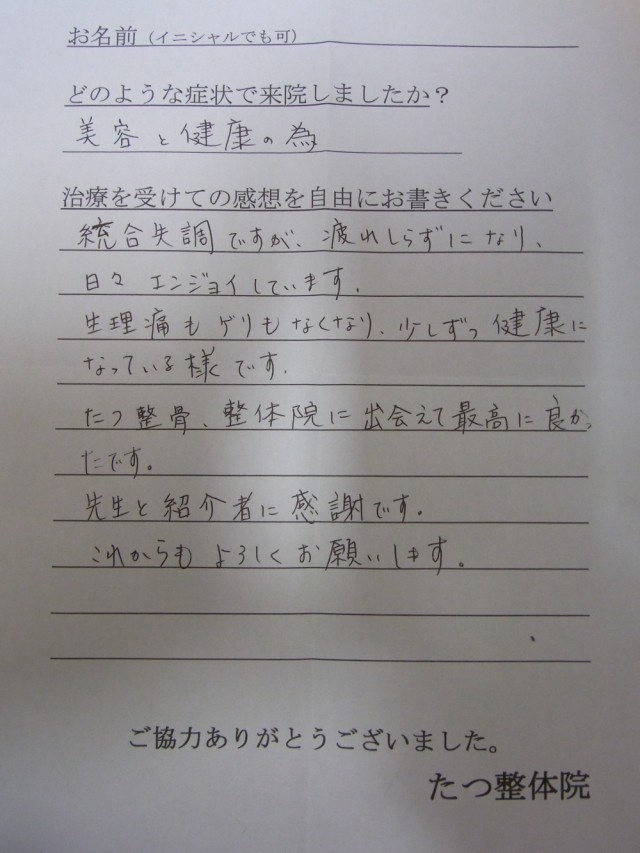 お名前（イニシャルでも可）
どのような症状で来院しましたか？
美容と健康の為
治療を受けての感想を自由にお書きください
統合失調ですが、疲れしらずになり、
日々エンジョイしています。
生理痛もゲリもなくなり、少しずつ健康に
なっている様です。
たつ整骨、整体院に出会えて最高に良かっ
たです。
先生と紹介者に感謝です。
これからもよろしくお願いします。
ご協力ありがとうございました。
たつ整体院